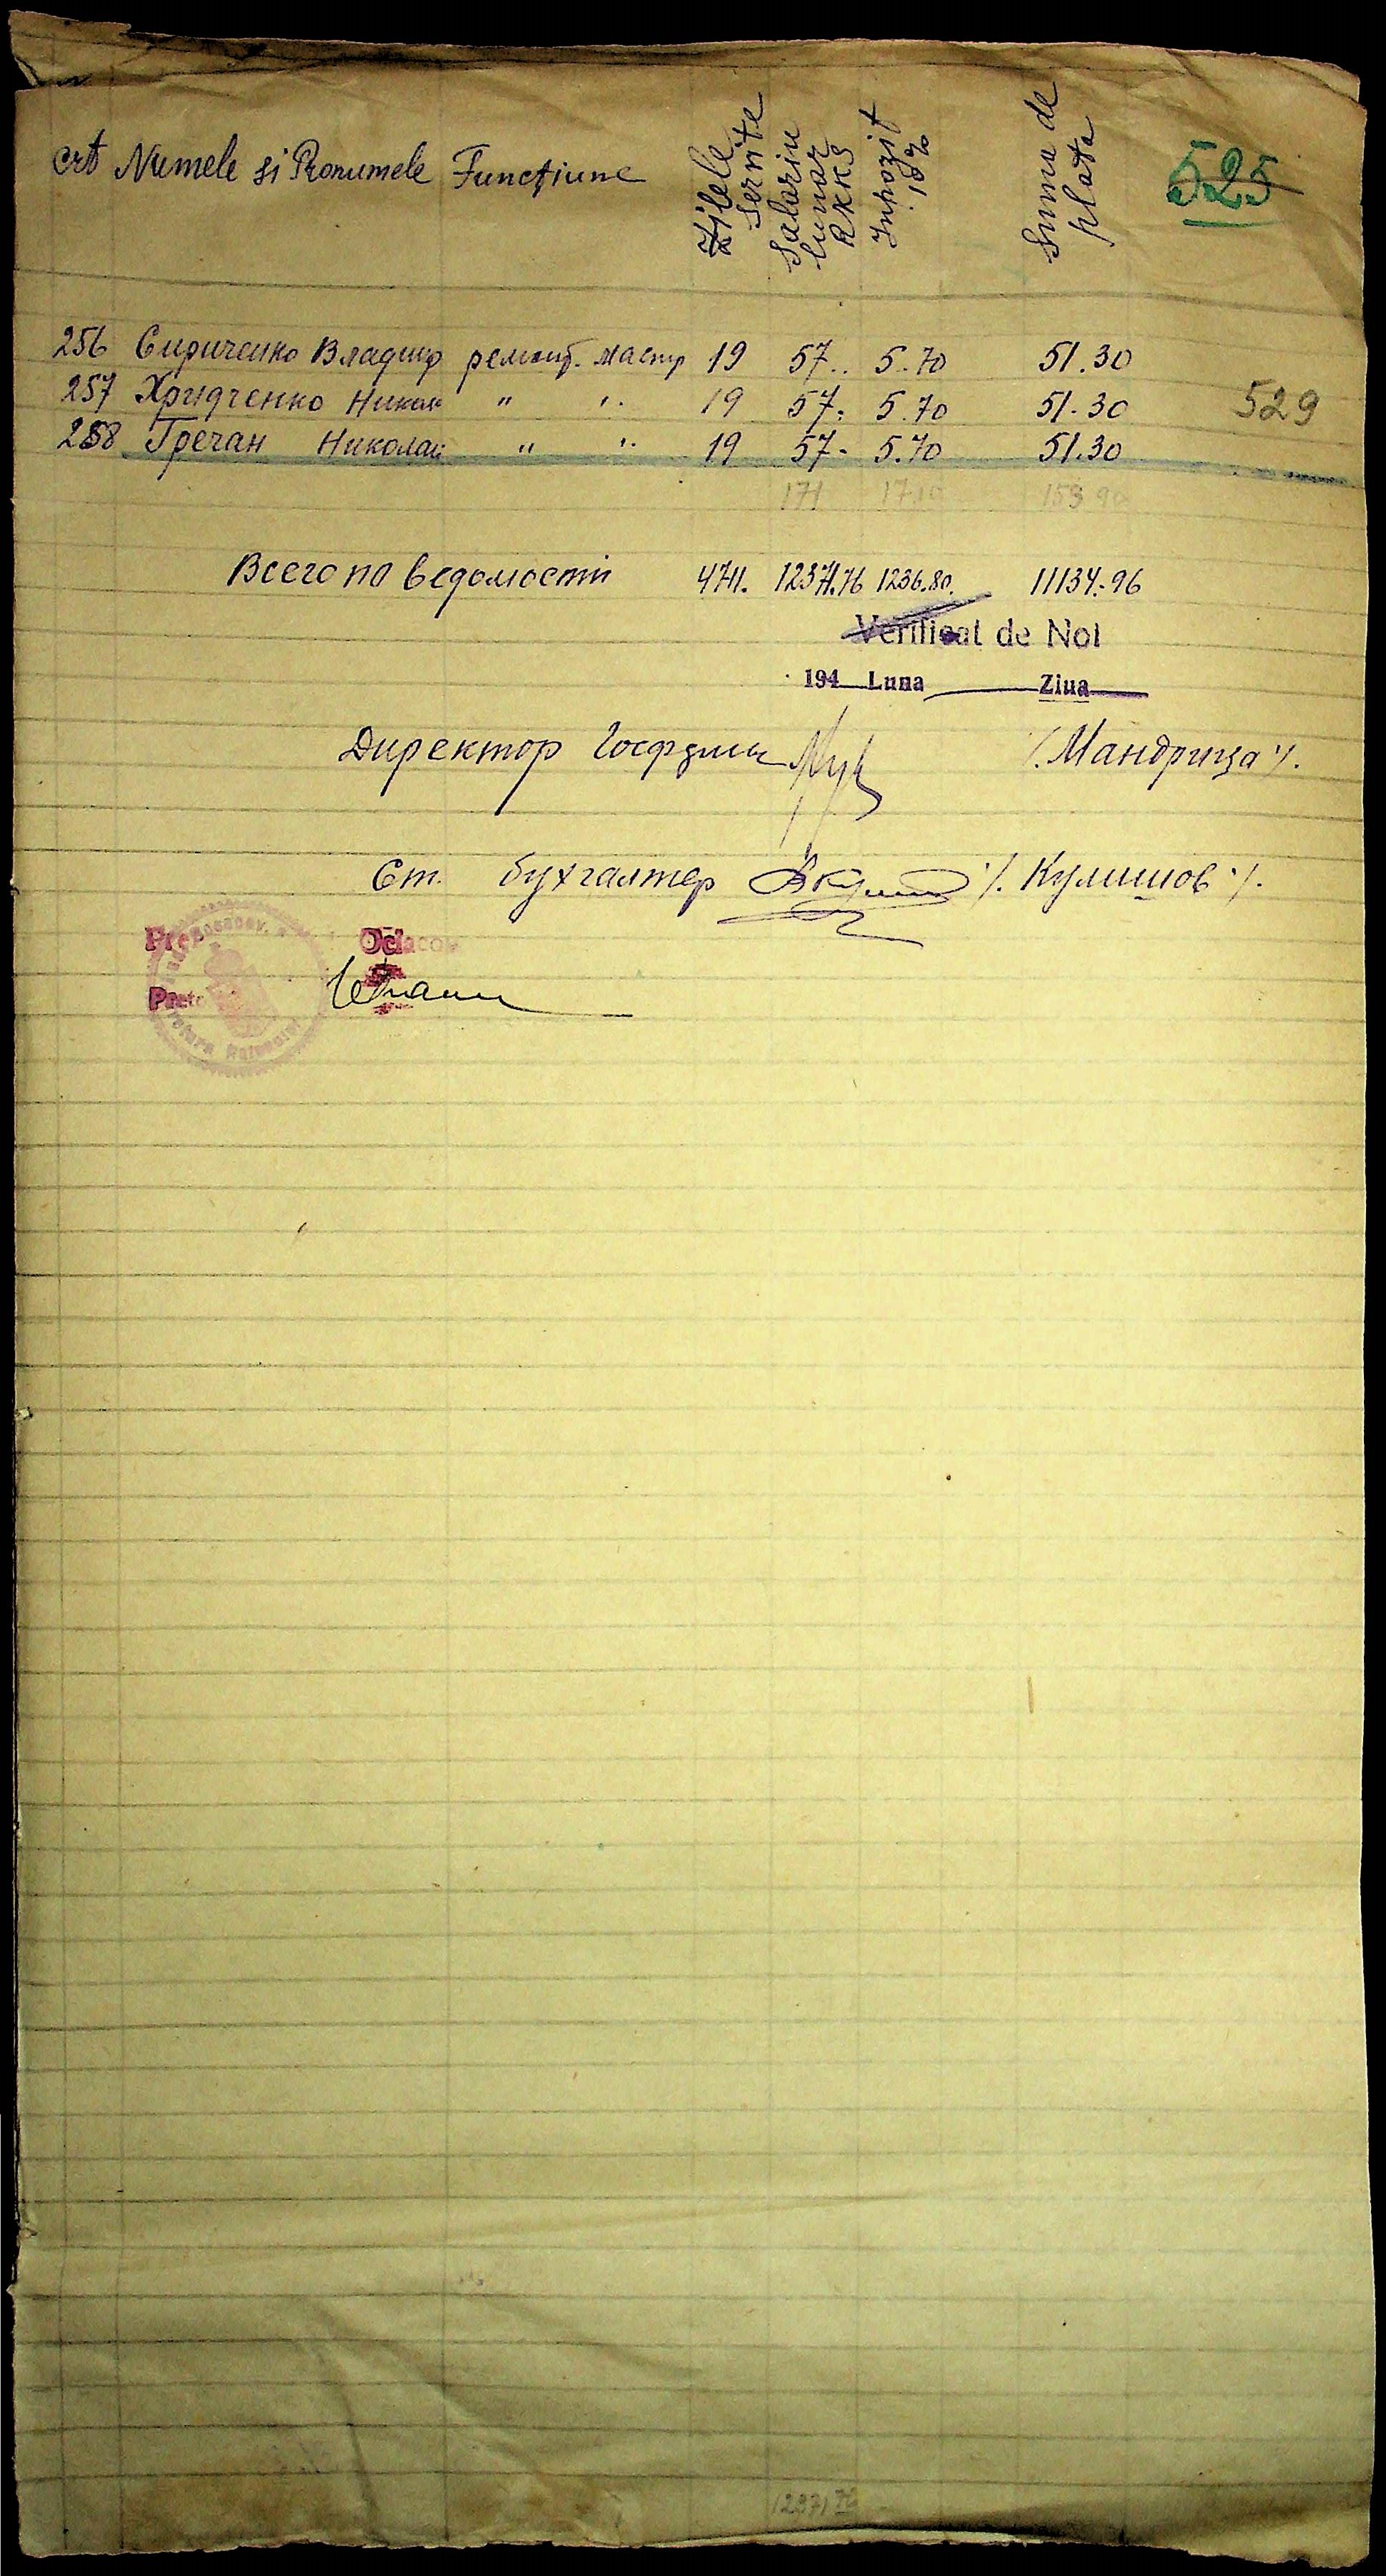 crt Numele si Pronumele Funcţiune Zilele servite Salariu lunar RKKS Inpozit 10% Suma de plata 525
256 Сириченко Владимир ремонт. мастер 19 57.. 5.70 51.30
257 Хридченко Никол " " 19 57. 5.70 51.30 529
258 Гречан Николай " " 19 57- 5.70 51.30
171 17.10 153 90
Всего по ведомости 4741. 12371.76 1236.80. 11134.96
Verificat de Noi
194 Luna Ziua
Директор Госфермы /.Мандрица/.
Ст. бухгалтер /. Кулишов /.
Ociacov
12371 76